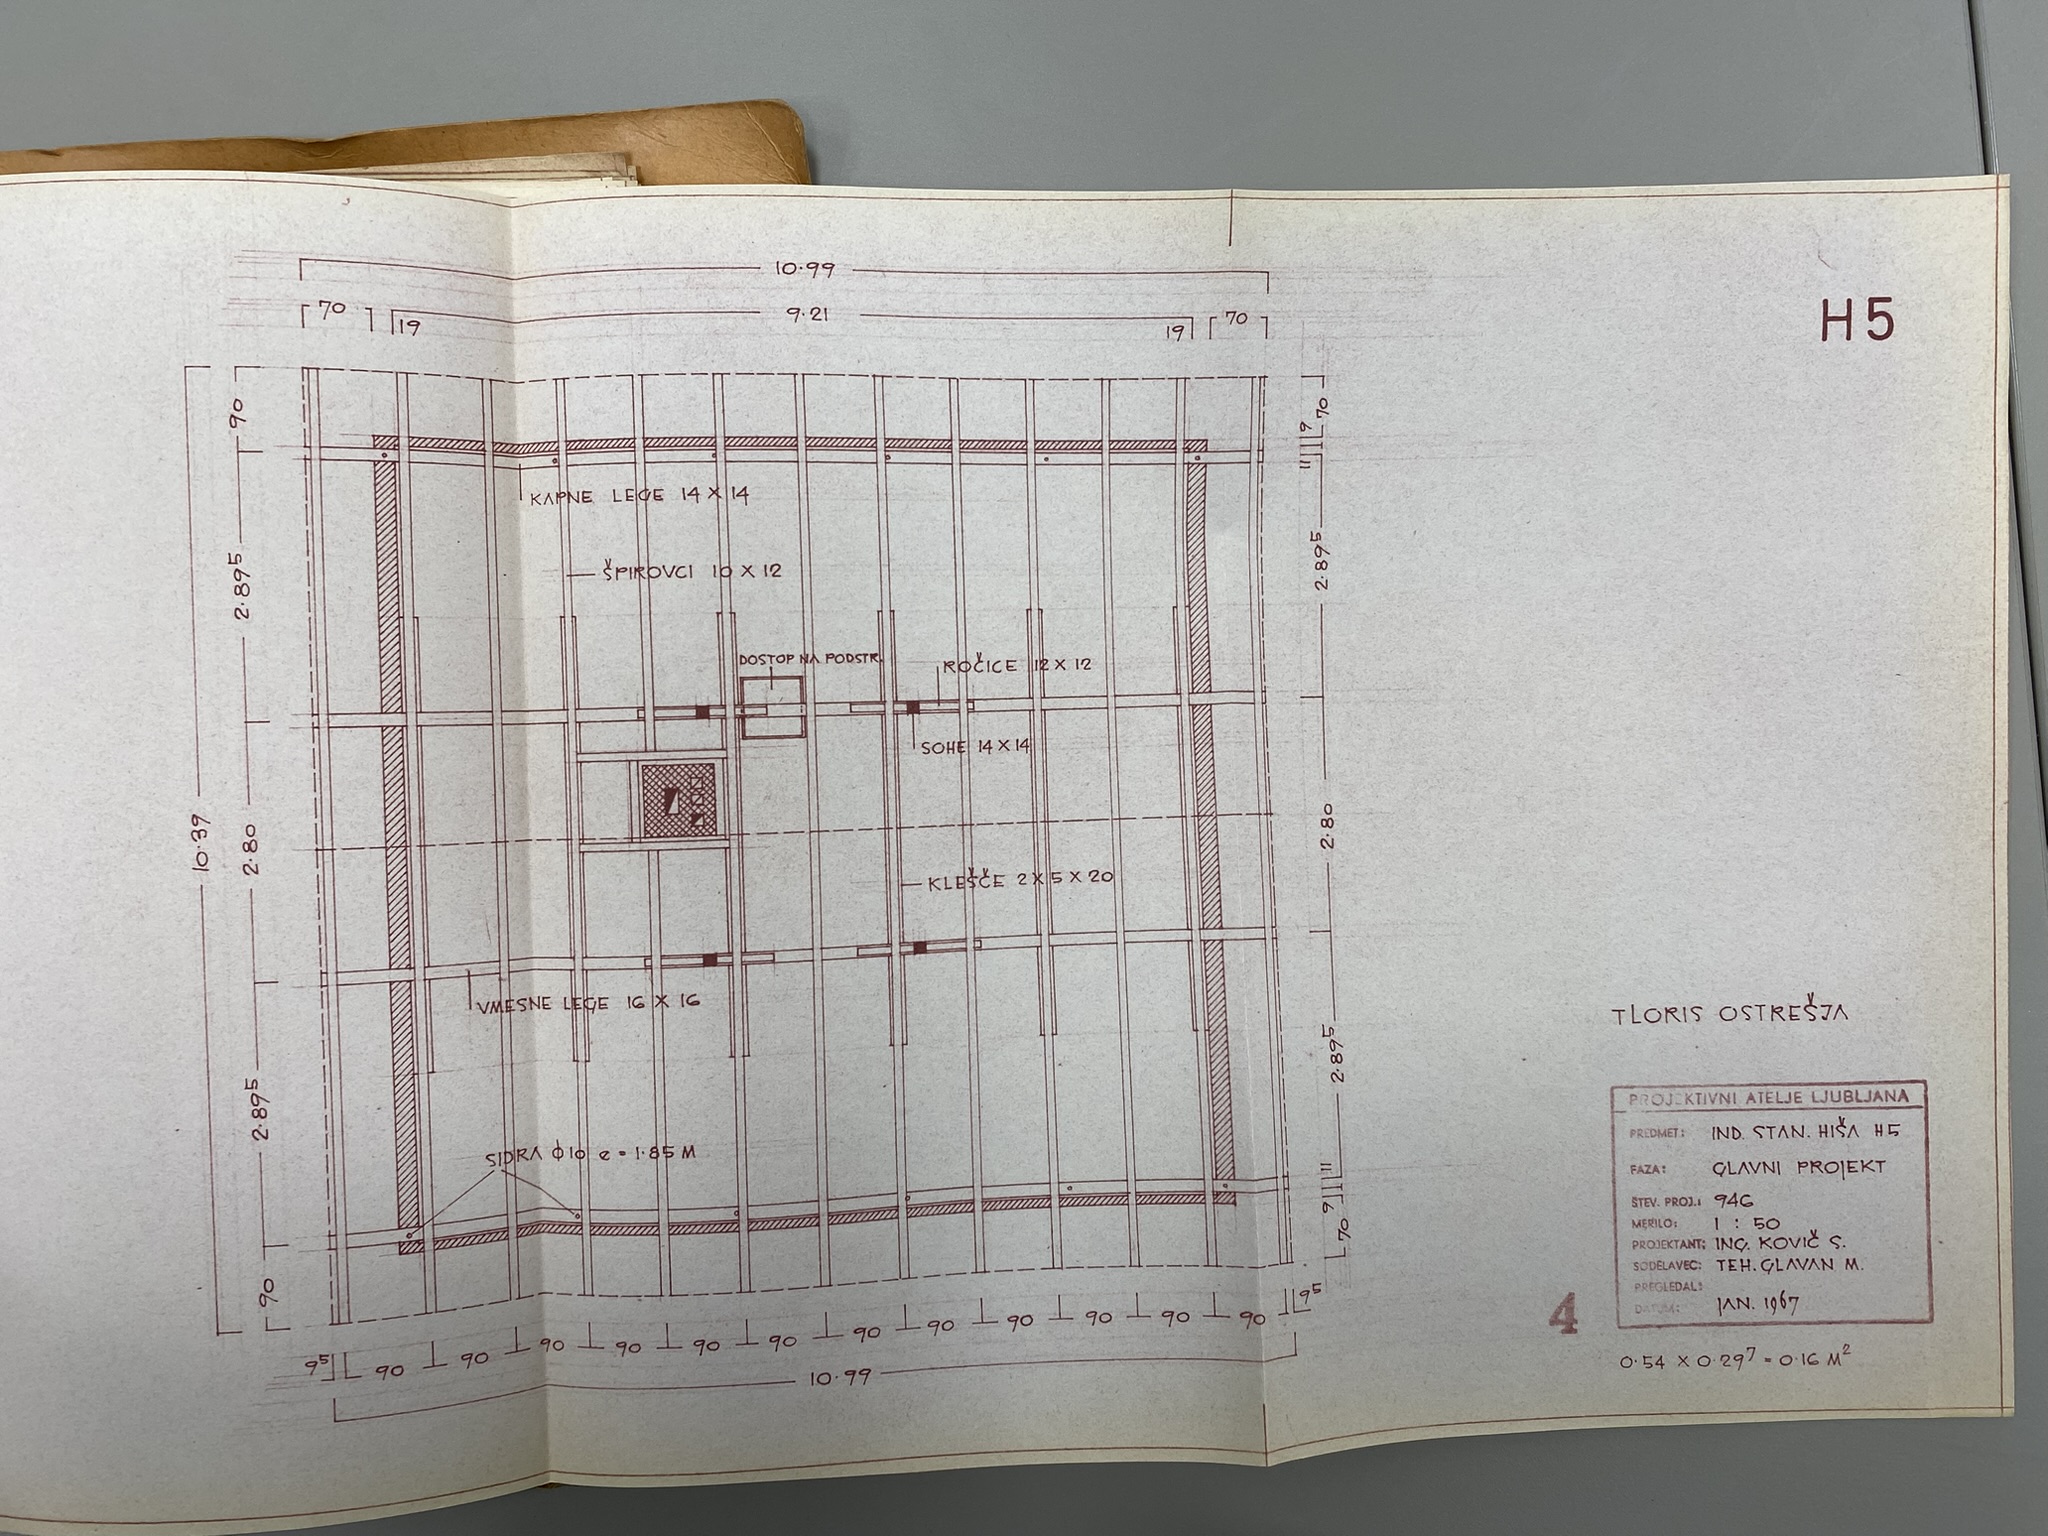 10.99
70
19
9.21
19
70
H5
90
2.895
2.80
10.39
2.895
90
70
9
11
2.895
2.80
2.895
11
9
70
KAPNE LEGE 14 X 14
ŠPIROVCI 10 X 12
DOSTOP NA PODSTR.
ROČICE 12 X 12
SOHE 14 X 14
KLEŠČE 2 X 5 X 20
VMESNE LEGE 16 X 16
SIDRA ϕ10 e = 1.85 M
9⁵ 90 90 90 90 90 90 90 90 90 90 90 90 9⁵
10.99
TLORIS OSTREŠJA
PROJEKTIVNI ATELJE LJUBLJANA
PREDMET: IND. STAN. HIŠA H5
FAZA: GLAVNI PROJEKT
ŠTEV. PROJ.: 946
MERILO: 1 : 50
PROJEKTANT: ING. KOVIČ S.
SODELAVEC: TEH. GLAVAN M.
PREGLEDAL:
DATUM: JAN. 1967
4
0.54 X 0.29⁷ = 0.16 M²